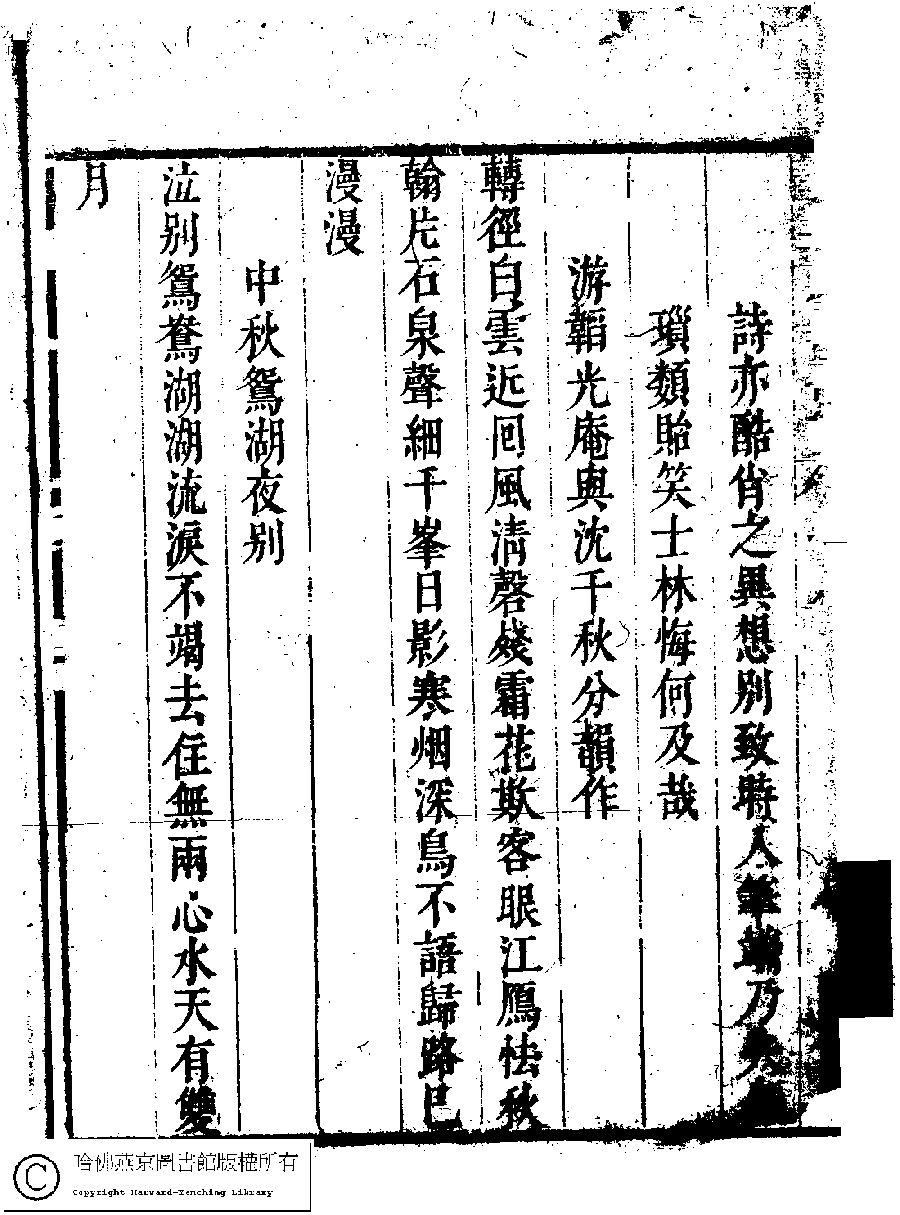 詩亦酷肖之異想別致時人筆端乃
瑣類貽笑士林悔何及哉
游韜光庵與沈千秋分韻作
轉徑白雲近囘風清磬殘霜花欺客眼江鴈怯秋
翰片石泉聲細千峯日影寒烟深鳥不語歸路已
漫漫
中秋鴛湖夜别
泣别鴛鴦湖湖流淚不竭去住無兩心水天有雙
月
哈佛燕京圖書館版權所有
Copyright Harvard-Yenching Library